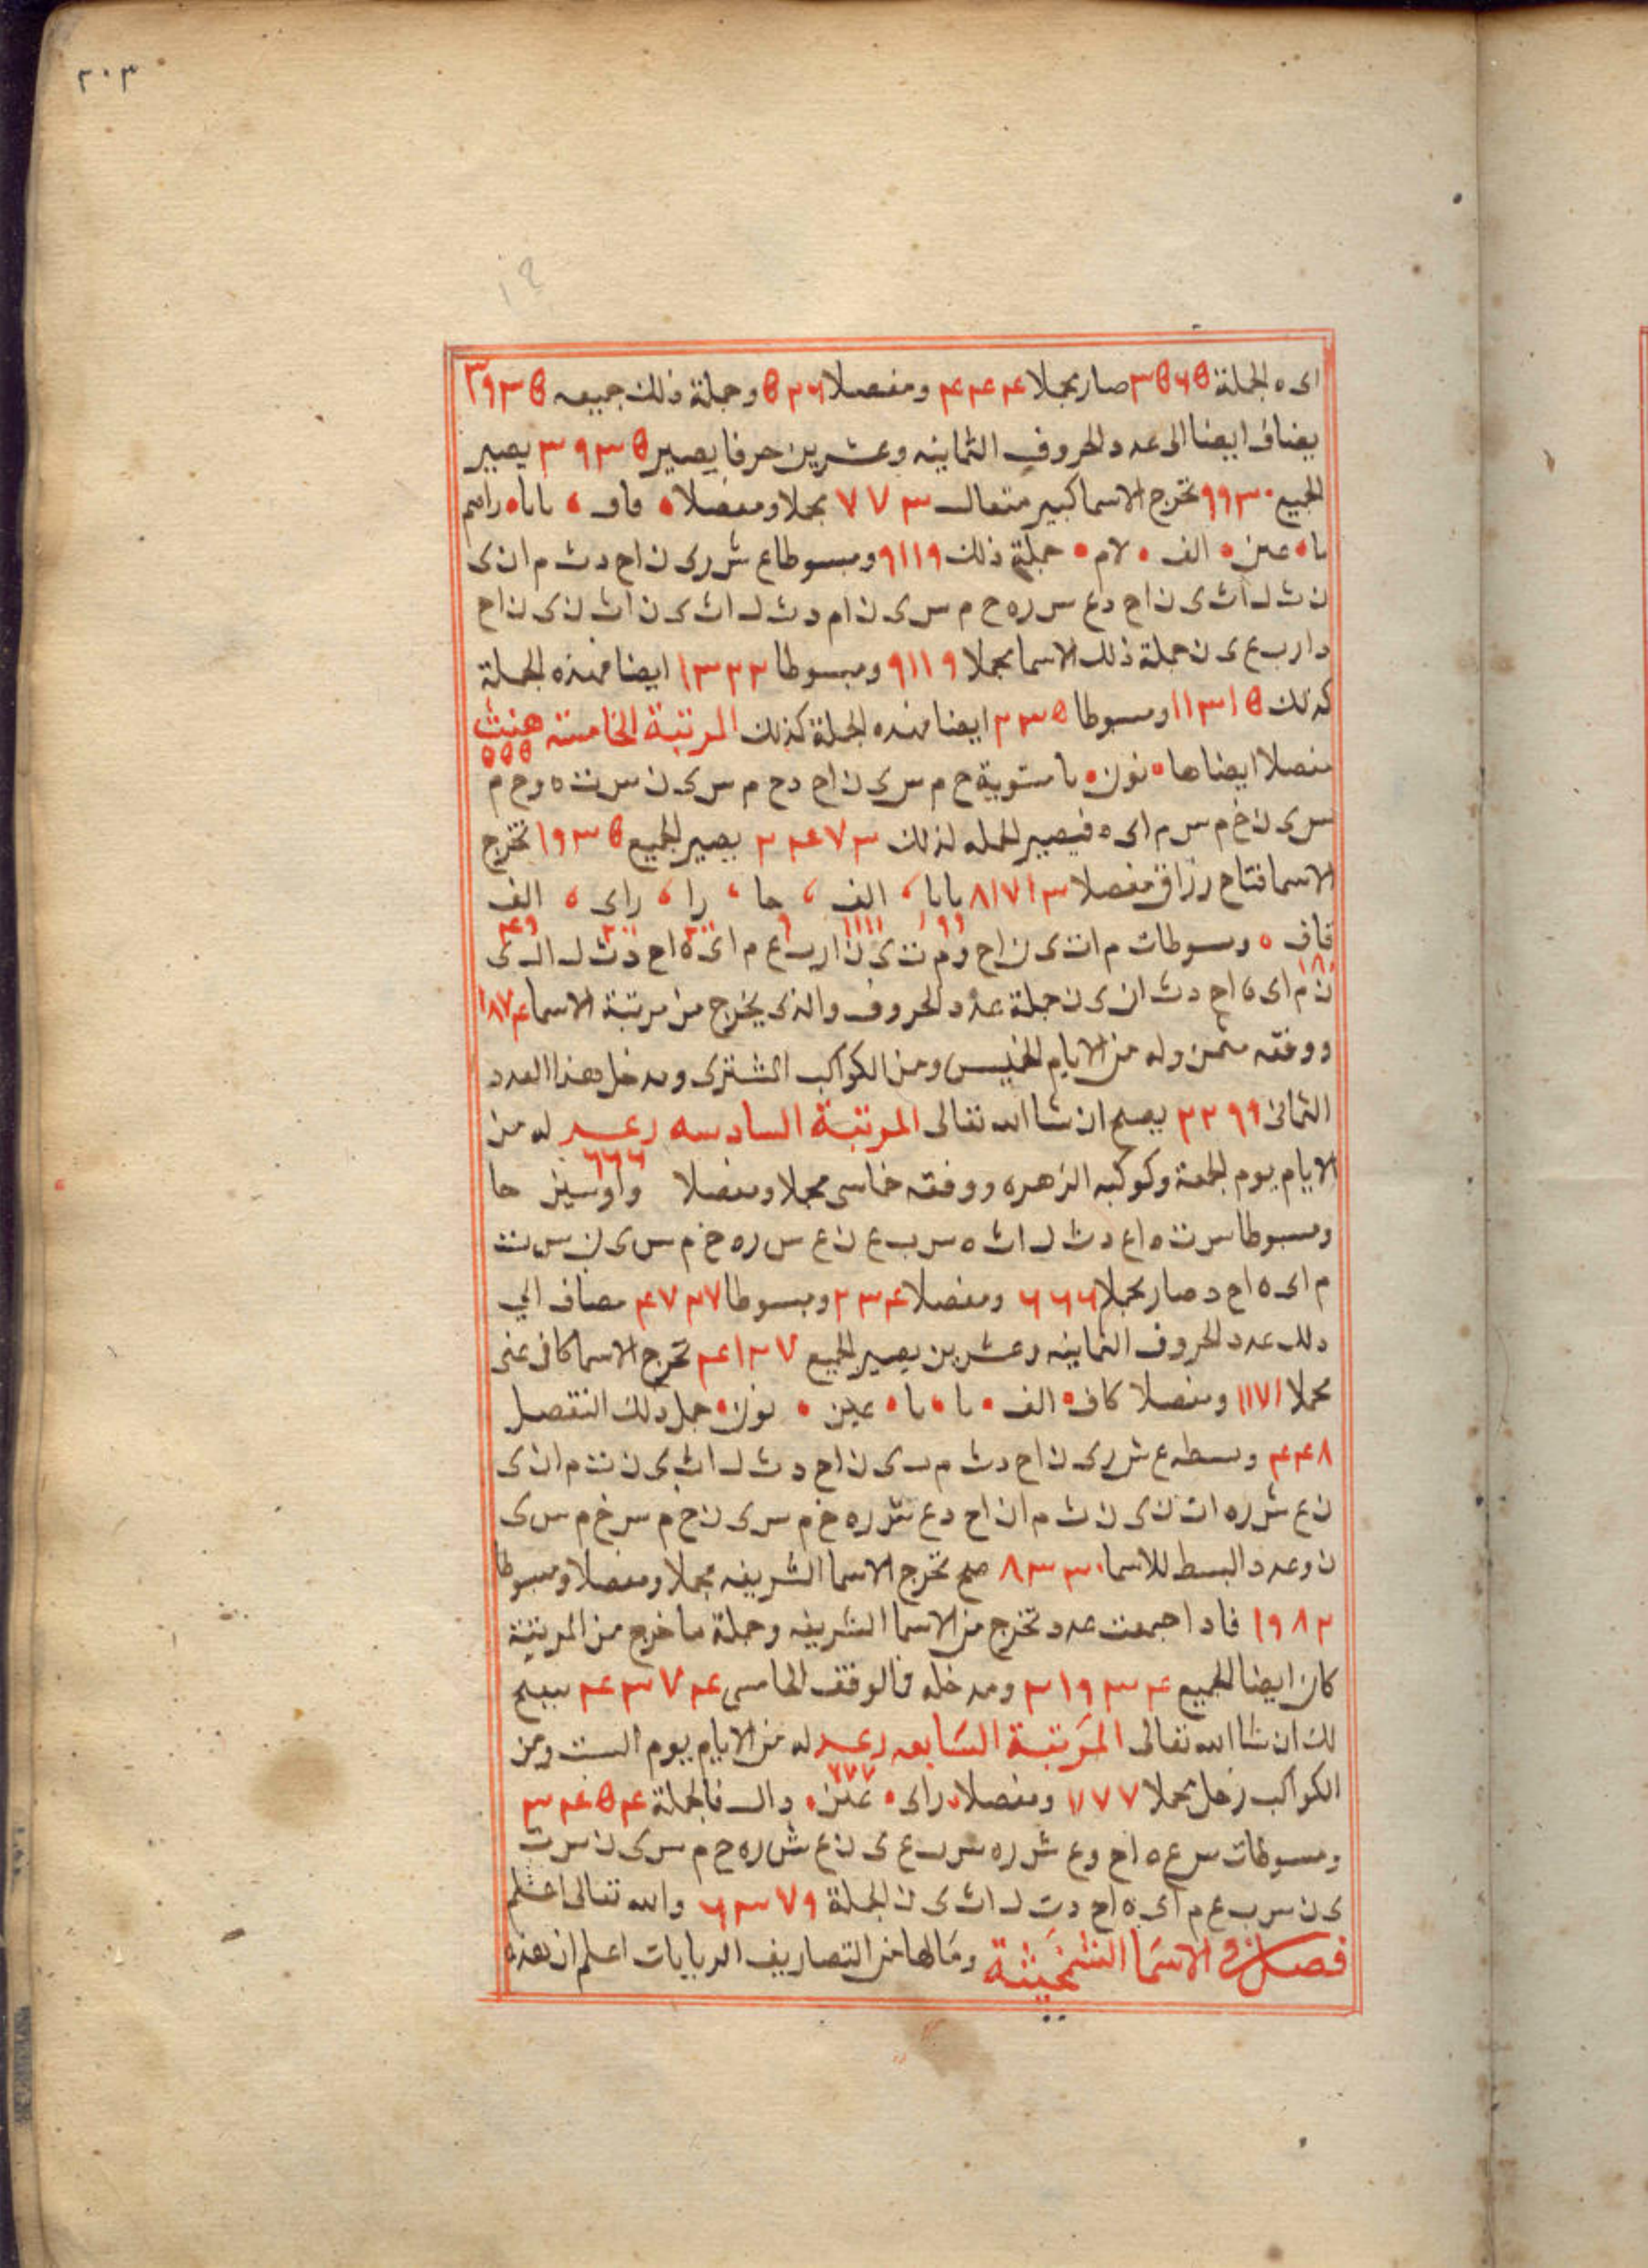 ٢٠٣
اى ه الجملة ٣٥٦٥ صار مجملا ٤٤٤ ومفصلا ٥٢٦ وجملة ذلك جميعه ٣٩٣٥
يضاف ايضا الى عدد الحروف الثمانيه وعشرين حرفا يصير ٣٩٣٥ يصير
الجميع ٩٩٣٠ تخرج الاسما كبير متعال ٧٧٣ مجملا ومفصلا ، كاف ، بابا ، را ميم
با ، عين ، الف ، لام ، جملة ذلك ٩١١٩ ومبسوطا ع ش ر ى ن ا ح د ث م ا ن ى
ن ث ل ا ث ى ن ا ح د ع س ر ه ح م س ى ن ا م د ث ل ا ث ى ن ا ث ن ى ن ا ح
د ا ر ب ع ى ن جملة ذلك الاسما مجملا ٩١١٩ ومبسوطا ١٣٢٢ ايضا فهذه الجملة
كذلك ١١٣١٥ ومبسوطا ٢٣٥ ايضا فهذه الجملة كذلك المرتبة الخامسة هنث
٥٥٥
مفصلا ايضا ها ، نون ، با ستوية ح م س ى ن ا ح د ح م س ى ن س ت ه و ح م
س ى ن خ م س م اى ه فيصير الجمله لذلك ٢٤٧٣ يصير الجميع ١٩٣٥ تخرج
الاسما فتاح رزاق مفصلا ٨١٧١٣ بابا ، الف ، حا ، را ، راى ، الف
قاف ، ومسوطات م ا ن ى ن ا ح و م ت ى ن ا ر ب ع م اى ه ا ح د ث ل ا ل ى
ن م اى ه ا ح د ث ا ن ى ن جملة عدد الحروف والذى يخرج من مرتبة الاسما ١٨٧٤
ووفقه مثمن وله من الايام الخميس ومن الكواكب المشترى ومدخل هذا العدد
الثمانى ٢٢٩٩ يصح ان شا الله تعالى المرتبة السادسه رعد له من
٦٦٦
الايام يوم الجمعة وكوكبه الزهره ووفقه خماسى مجملا ومفصلا واو سين حا
ومبسوطا س ت ه ا ع د ث ل ا ث ه س ب ع ن ع س ر ه خ م س ى ن س ت
م اى ه ا ح د صار مجملا ٦٦٦ ومفصلا ٢٣٤ ومبسوطا ٤٧٢٧ مضاف الي
ذلك عدد الحروف الثمانيه وعشرين يصير الجميع ٤١٢٧ تخرج الاسما كافى غنى
مجملا ١١٧١ ومفصلا كاف ، الف ، با ، با ، عين ، نون ، جمل ذلك التفصل
٤٤٨ وبسطه ع ش ر ى ن ا ح د ث م ى ن ا ح د ث ل ا ث ى ن ث م ا ن ى
ن ع ش ر ه ا ث ن ى ن ث م ا ن ا ح د ع ش ر ه خ م س ى ن خ م س خ م س ى
ن وعدد البسط للاسما ٨٣٣٠ صح تخرج الاسما الشريفه مجملا ومفصلا ومبسوطا
١٩٨٢ فاذا جمعت عدد تخرج من الاسما الشريفه وجملة ما خرج من المرتبة
كان ايضا الجميع ٣١٩٣٤ ومدخله فى الوفق الخامسى ٤٣٧٤ يصح
لك ان شا الله تعالى المرتبة السابعه رعد له من الايام يوم السبت ومن
٧٧٧
الكواكب زحل مجملا ١١٧٧ ومفصلا ، راى ، عين ، دال فالجملة ٣٤٥٤
ومسوطات س ع ه ا ح و ع ش ر ه س ب ع ى ن ع ش ر ه ح م س ى ن س ت
ى ن س ب ع م اى ه ا ح د ث ل ا ث ى ن الجملة ٦٣٧٩ والله تعالى اعلم
فصل فى الاسما الشمخيثة ومالها من التصاريف الربانيات اعلم ان هذه